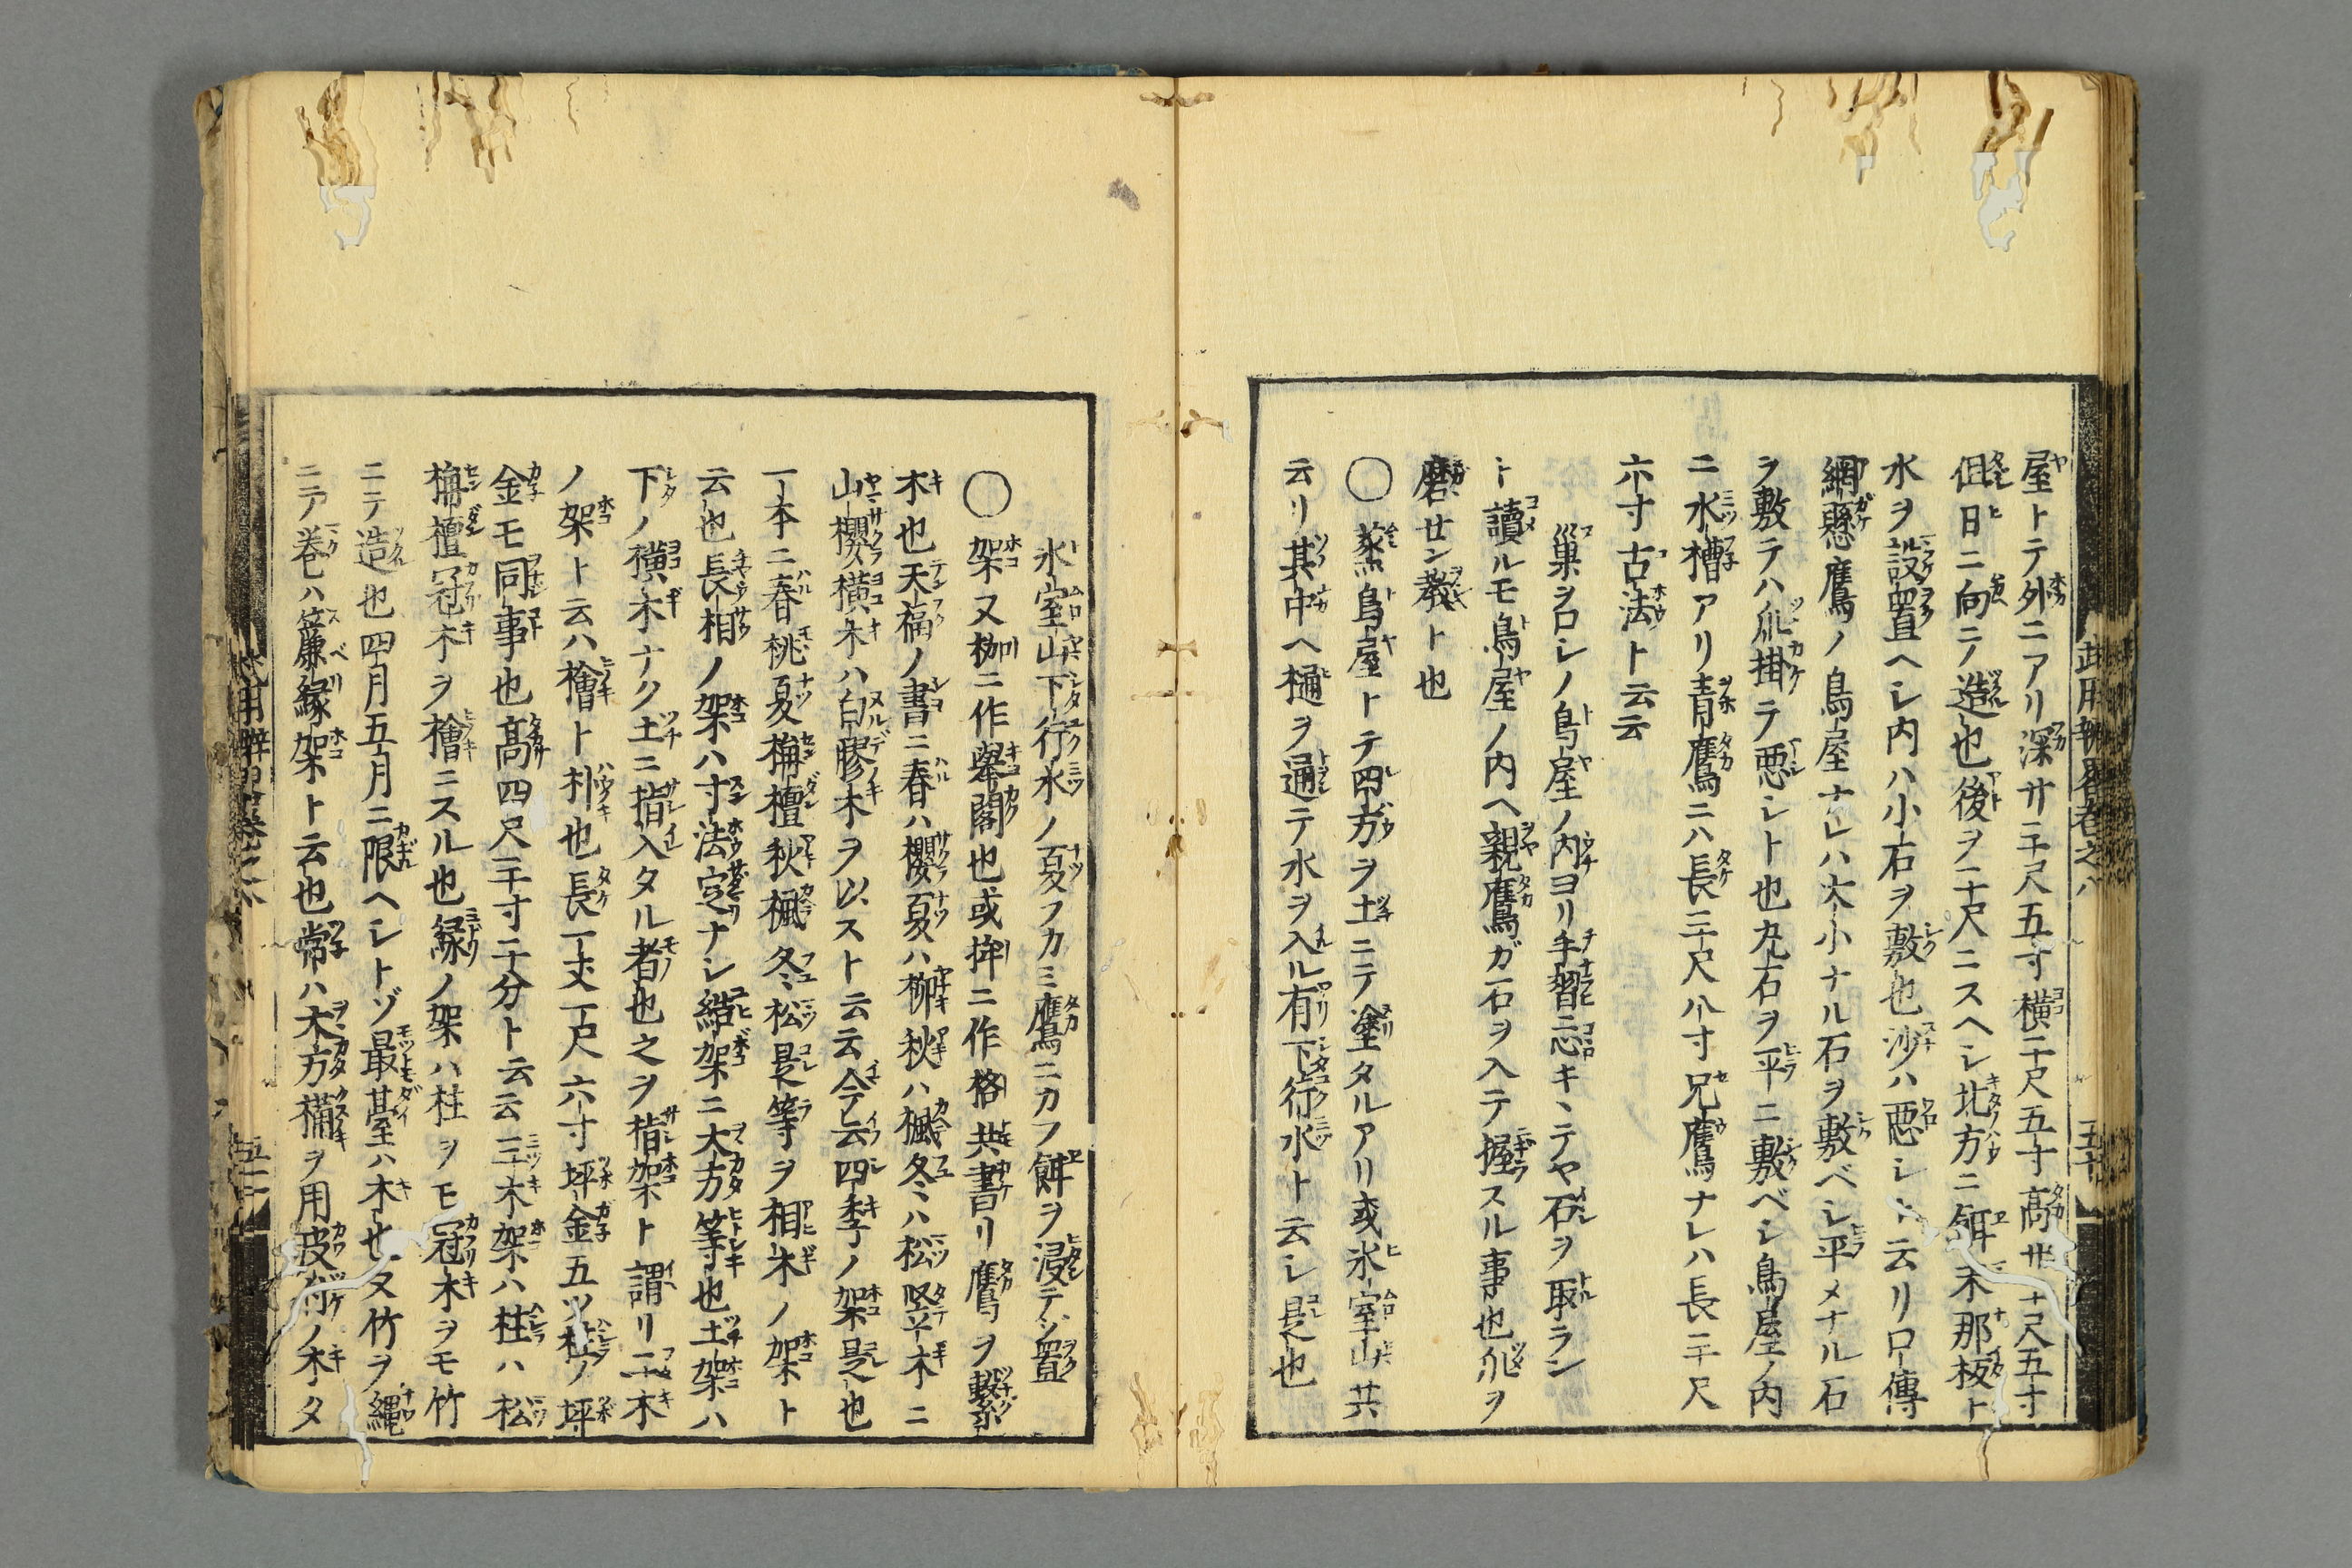 屋トテ外ニアリ深サ二尺五寸横二尺五寸高サ一尺五寸
但日ニ向ニノ造也後ヲ二尺ニスヘシ北方ニ餌木那板ト
水ヲ設置ヘシ内ハ小石ヲ敷也沙ハ悪シト云リ口傳
網懸鷹ノ鳥屋ナレハ大小ナル石ヲ敷ベシ平メナル石
ヲ敷テハ爪掛テ悪シト也丸石ヲ平ニ敷ベシ鳥屋ノ内
ニ水槽アリ青鷹ニハ長三尺八寸兄鷹ナレハ長二尺
六寸古法ト云云
巢ヲロシノ鳥屋ノ内ヨリ手習忘キヽテヤ石ヲ取ラン
ト讀ルモ鳥屋ノ内ヘ親鷹ガ石ヲ入テ握スル事也爪ヲ
磨せン教ト也
〇蒸鳥屋トテ四方ヲ土ニテ塗タルアリ或氷室山共
云リ其中ヘ樋ヲ通テ水ヲ入ル有下行水ト云シ是也
氷室山下行水ノ夏フカミ鷹ニカフ餌ヲ浸テゾ置
〇架又枷ニ作擧閣也或挬ニ作格共書リ鷹ヲ繋
木也天福ノ書ニ春ハ櫻夏ハ柳秋ハ楓冬ハ松竪平木ニ
山櫻横木ハ白膠木ヲ以スト云云今云四季ノ架是也
一本ニ春桃夏栴檀秋楓冬松是等ヲ相木ノ架ト
云也長相ノ架ハ寸法定ナシ結架ニ大方等也土架ハ
下ノ横木ナク土ニ指入タル者也之ヲ指架ト謂リ二木
ノ架ト云ハ檜ト朴也長一丈一尺六寸坪金五ツ柱ノ坪
金モ同事也高四尺二寸二分ト云云三木架ハ柱ハ松
栴檀冠木ヲ檜ニスル也縁ノ架ハ柱ヲモ冠木ヲモ竹
ニテ造也四月五月ニ限ヘシトゾ最臺ハ木也又竹ヲ縄
ニテ巻ハ簾縁架ト云也常ハ木方備ヲ用皮付ノ木タ